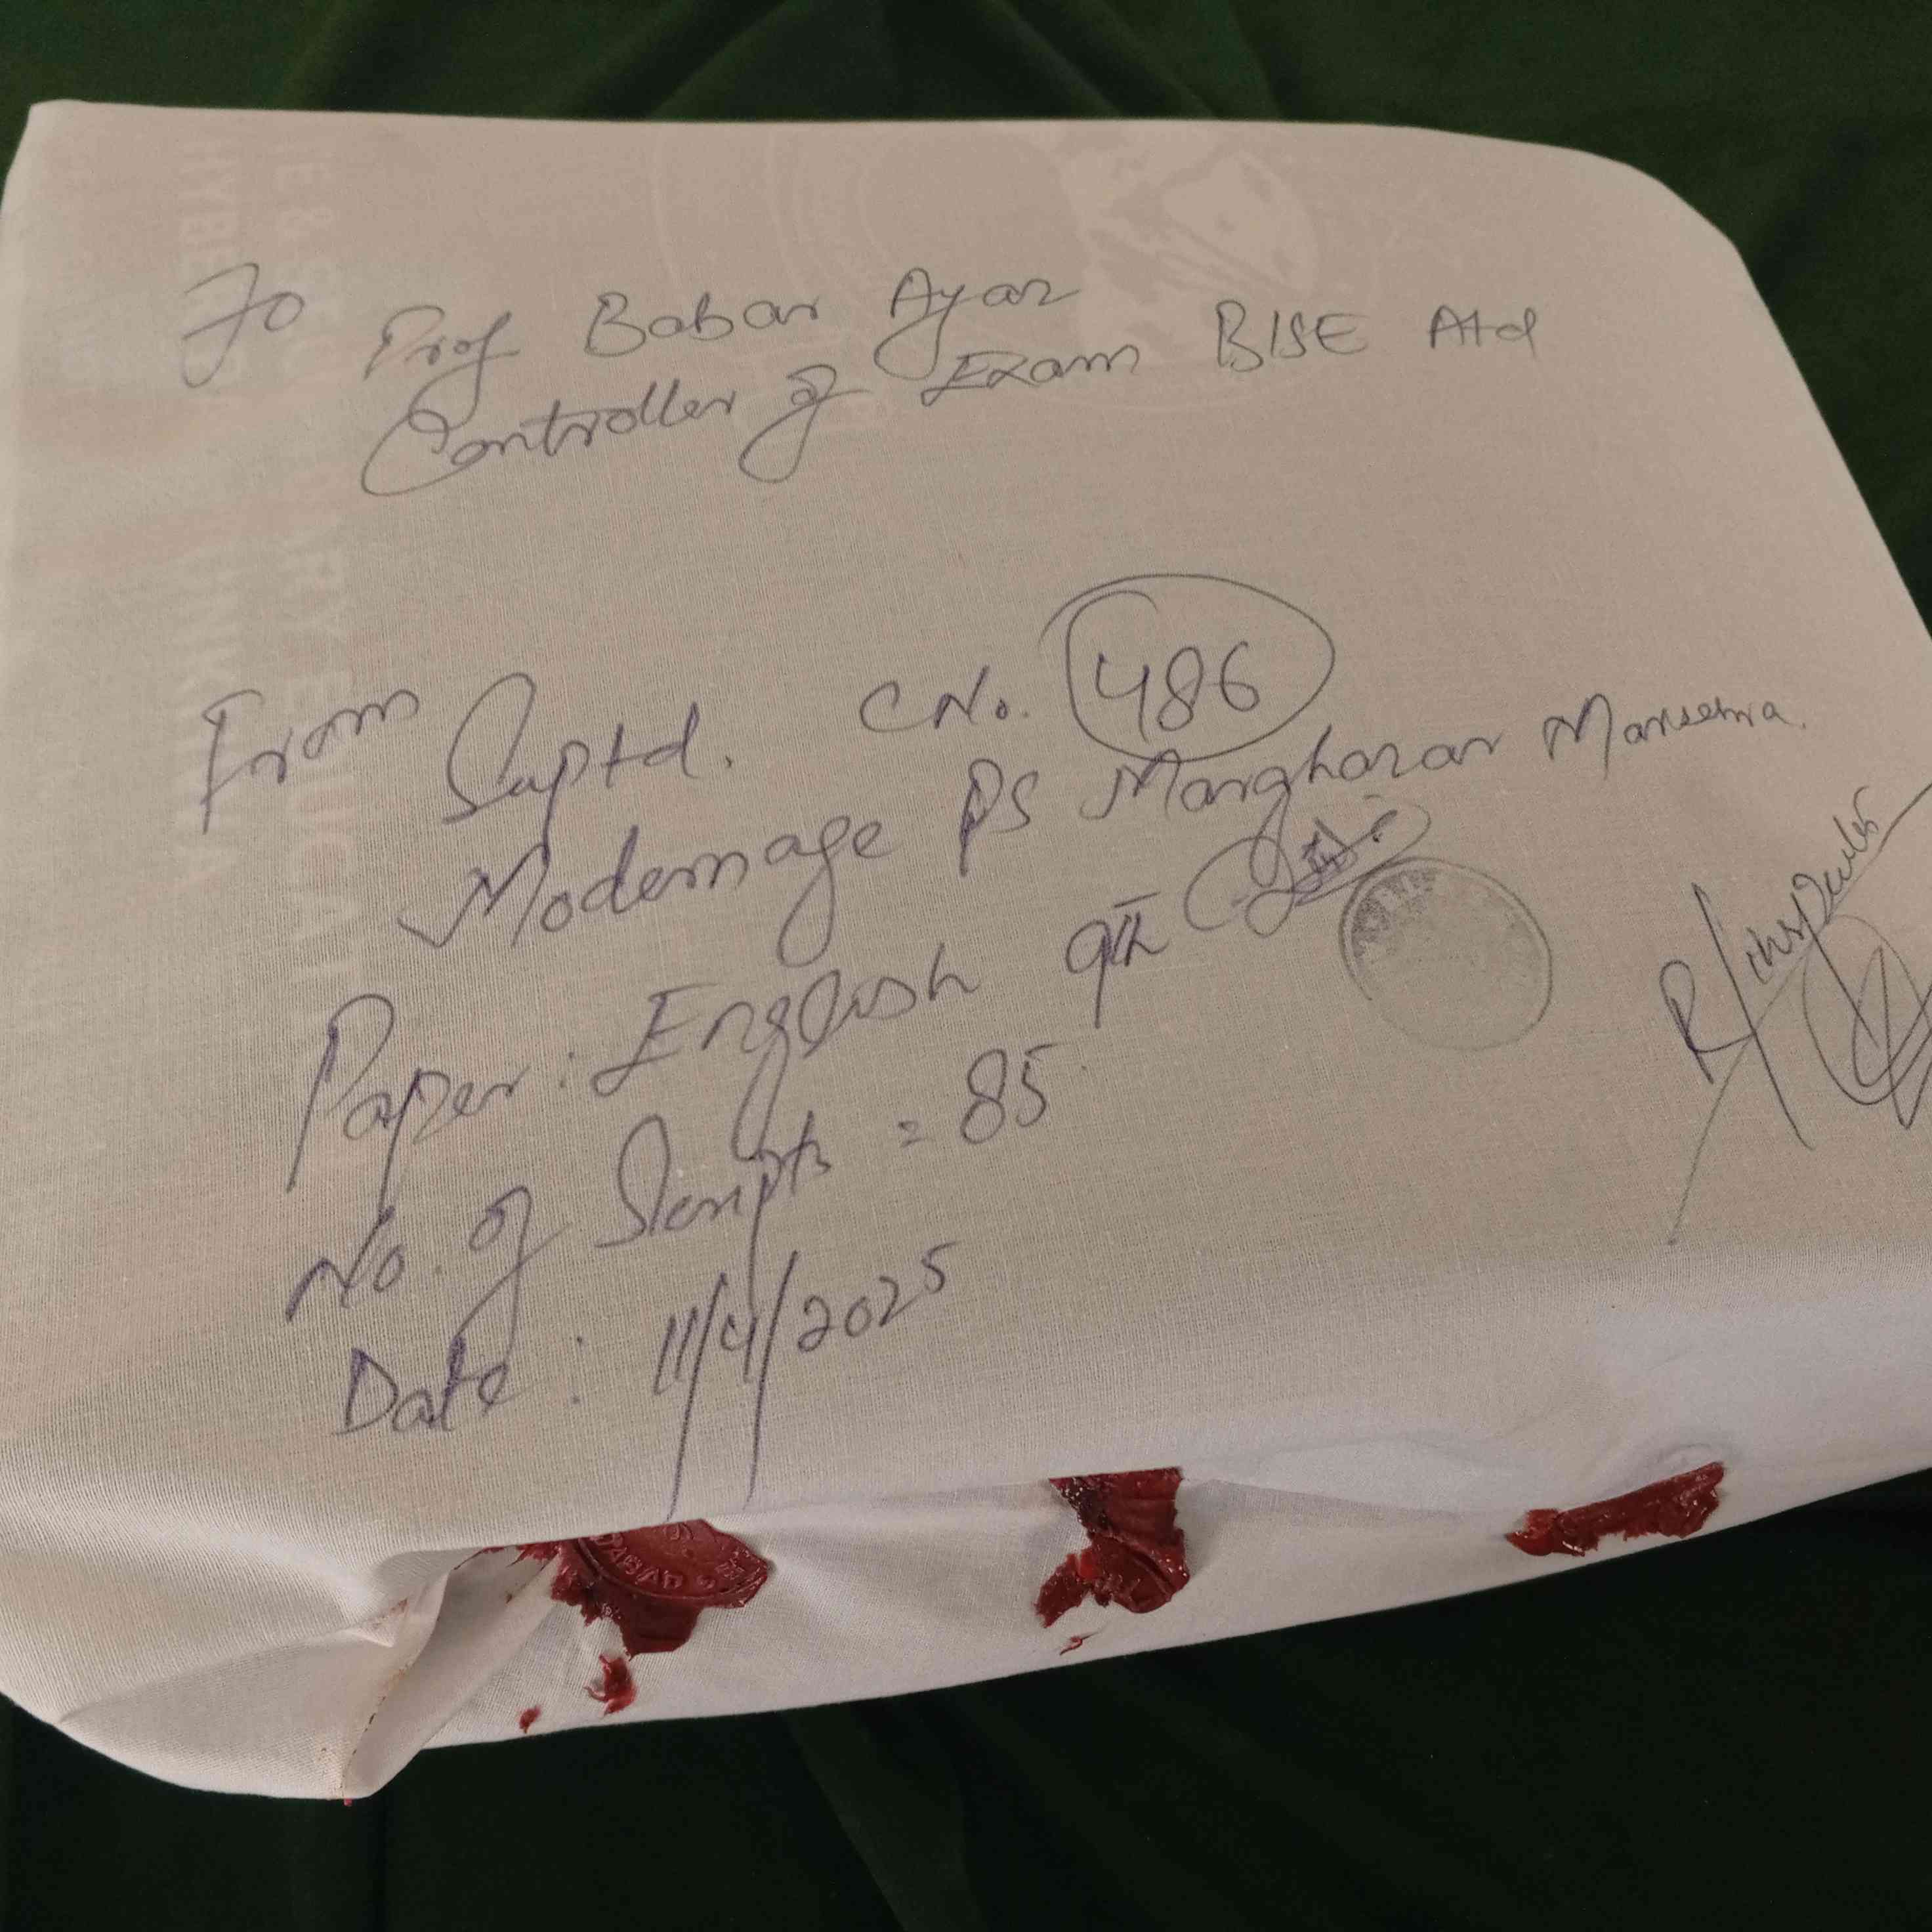 To
Prof Babar Ayaz
Controller of Exam BISE Atd
From
Suptd. C No. 486
Modernage PS Marghazar Mansehra.
Paper: English 9th
R/Inspector
No. of Scripts = 85
Date: 11/4/2025